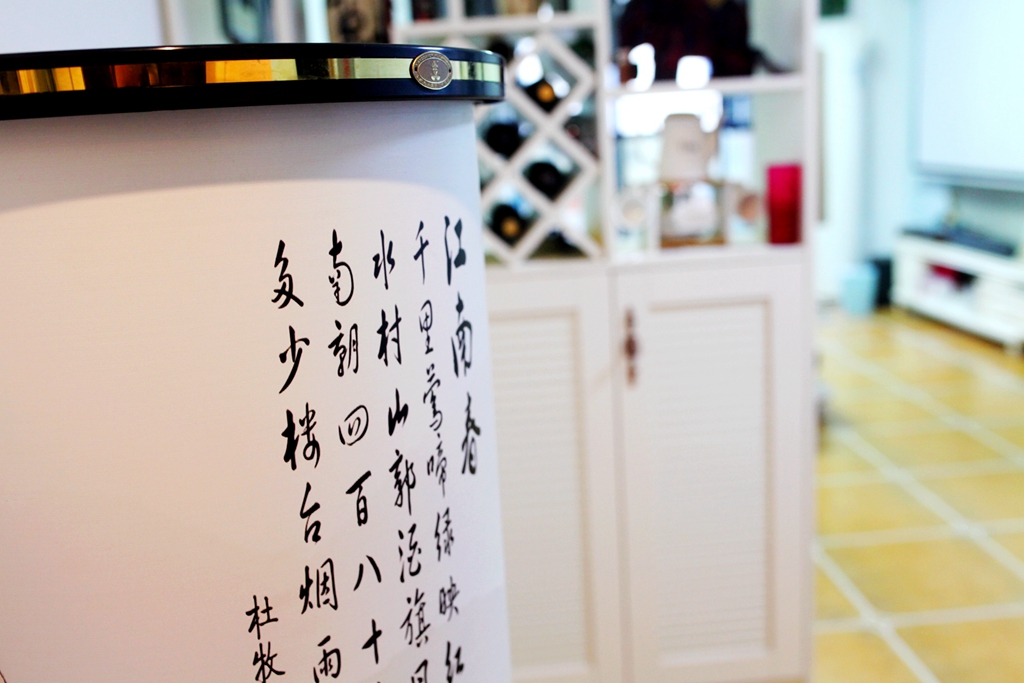 江南春
千里莺啼绿映红
水村山郭酒旗风
南朝四百八十
多少楼台烟雨
杜牧